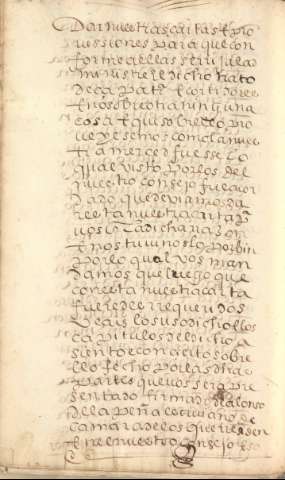 Dar nuestras cartas e pro
visiones para que con
forme a ellas se
el dicho trato
de capas e
e nos o bre otra ninguna
cosa e que sobre ello pro
veyesemos como la nues
tra merced fuesse lo
qual visto por los del
nuestro consejo fue acor
dado que deviamos da
r esta nuestra carta p
vos en la dicha razon
e nos tuvimos lo por bien
por lo qual vos man
damos que luego que
con esta nuestra carta
fueredes requeridos
veais los susodichos
capitulos del dicho a
siento e concierto sobre
llo fecho por las dhas
partes que vos sera pre
sentado firmado de alonso
de la peña escrivano de
camara de los que residen
en el nuestro consejo